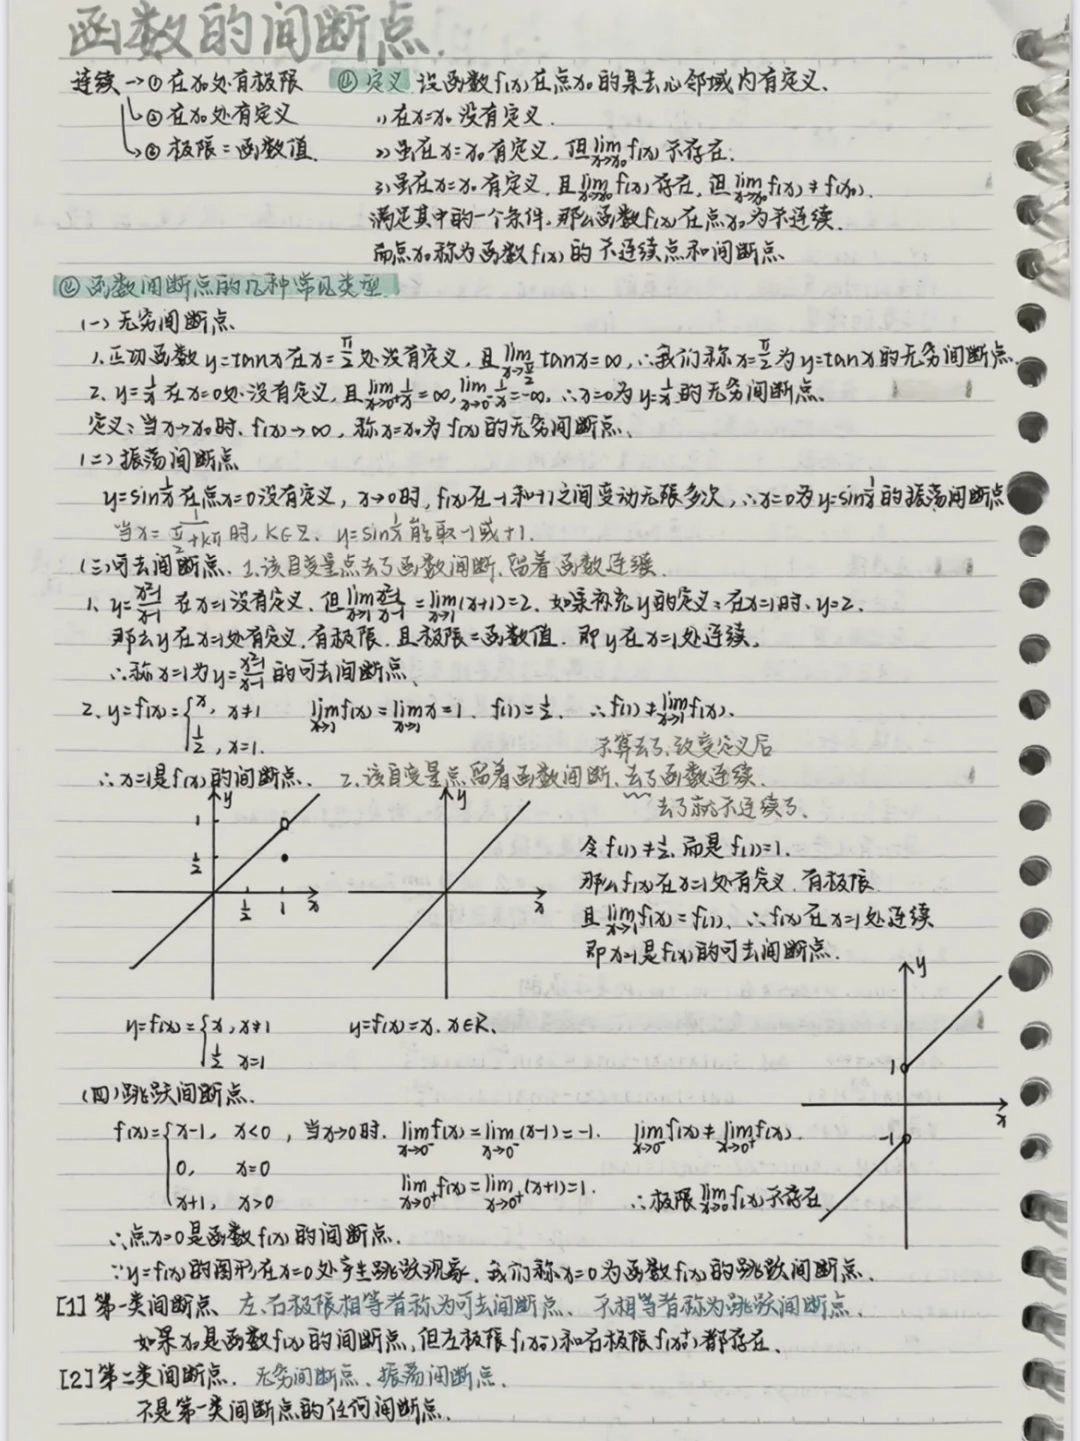 函数的间断点.
连续→①在x₀处有极限
↳②在x₀处有定义
↳③极限=函数值.
(1) 定义 设函数f(x)在点x₀的某去心邻域内有定义、
1)在x=x₀没有定义.
2)虽在x=x₀有定义,但lim(x→x₀)f(x)不存在;
3)虽在x=x₀有定义,且lim(x→x₀)f(x)存在,但lim(x→x₀)f(x)≠f(x₀).
满足其中的一个条件,那么函数f(x)在点x₀为不连续.
而点x₀称为函数f(x)的不连续点和间断点
(2) 函数间断点的几种常见类型
(一)无穷间断点
1.正切函数y=tanx在x=π/2处没有定义,且lim(x→π/2)tanx=∞,∴我们称x=π/2为y=tanx的无穷间断点.
2、y=1/x在x=0处没有定义,且lim(x→0⁺)1/x=∞,lim(x→0⁻)1/x=-∞,∴x=0为y=1/x的无穷间断点.
定义:当x→x₀时、f(x)→∞,称x=x₀为f(x)的无穷间断点、
(二)振荡间断点
y=sin1/x在点x=0没有定义,x→0时,f(x)在-1和+1之间变动无限多次,∴x=0为y=sin1/x的振荡间断点
当x=1/(π/2+kπ)时,k∈Z、y=sin1/x能取-1或+1.
(三)可去间断点、1、该自变量点去了函数间断、留着函数连续.
1、y=(x²-1)/(x-1)在x=1没有定义,但lim(x→1)(x²-1)/(x-1)=lim(x→1)(x+1)=2.如果补充y的定义:在x=1时、y=2.
那么y在x=1处有定义.有极限.且极限=函数值.即y在x=1处连续。
∴称x=1为y=(x²-1)/(x-1)的可去间断点、
2、y=f(x)={x,x≠1 lim(x→1)f(x)=lim(x→1)x=1.f(1)=1/2.∴f(1)≠lim(x→1)f(x)、
1/2,x=1.
不算去了、改变定义后
∴x=1是f(x)的间断点.2、该自变量点留着函数间断、去了函数连续.
去了就不连续了、
y
1
1/2
1/2 1 x
y
x
令f(1)≠1/2.而是f(1)=1.
那么f(x)在x=1处有定义.有极限
且lim(x→1)f(x)=f(1)、∴f(x)在x=1处连续
即x=1是f(x)的可去间断点.
y=f(x)={x,x≠1
1/2 x=1
y=f(x)=x.x∈R、
y
1
-1
x
(四)跳跃间断点.
f(x)={x-1,x<0,当x→0时.lim(x→0⁻)f(x)=lim(x→0⁻)(x-1)=-1.lim(x→0⁻)f(x)≠lim(x→0⁺)f(x).
0,x=0
x+1,x>0 lim(x→0⁺)f(x)=lim(x→0⁺)(x+1)=1.∴极限lim(x→0)f(x)不存在
∴点x=0是函数f(x)的间断点.
∵y=f(x)的图形在x=0处产生跳跃现象.我们称x=0为函数f(x)的跳跃间断点.
[1]第一类间断点 左、右极限相等者称为可去间断点、不相等者称为跳跃间断点.
如果x₀是函数f(x)的间断点,但左极限f(x₀⁻)和右极限f(x₀⁺)都存在.
[2]第二类间断点.无穷间断点、振荡间断点.
不是第一类间断点的任何间断点.